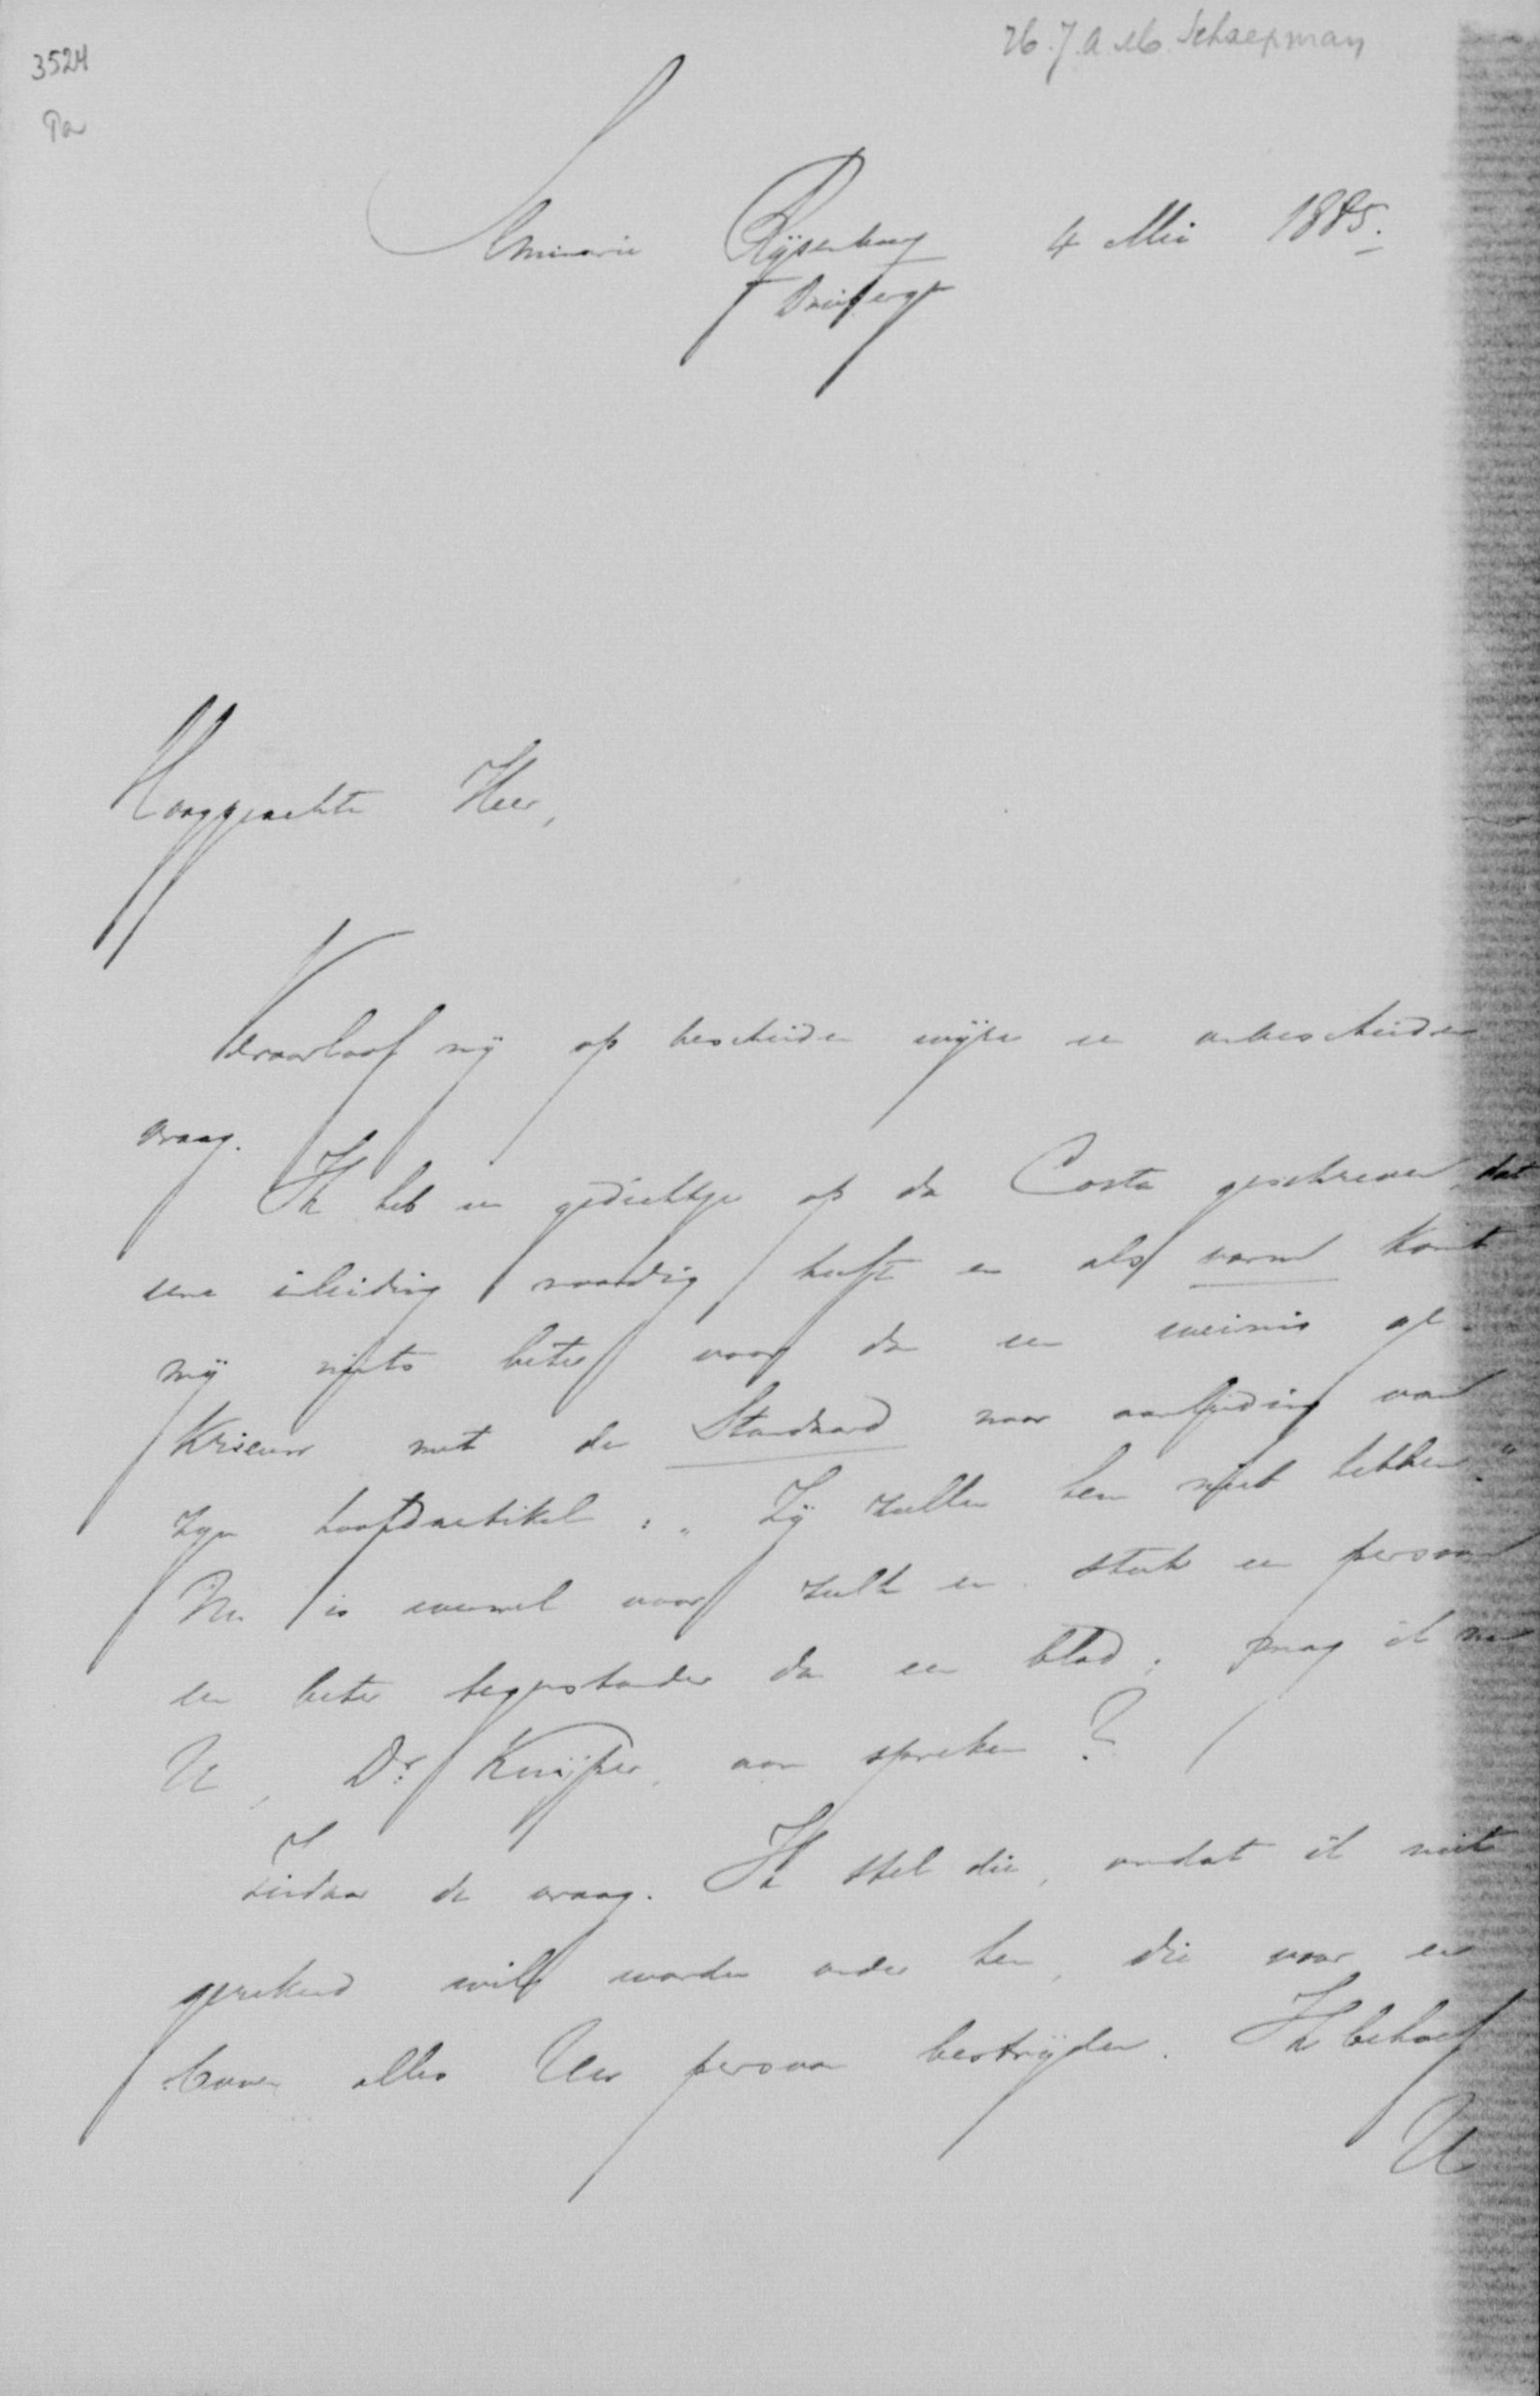 3524
H. J. A. M. Schaepman
Pa
Seminarie Rijsenburg 4 Mei 1885.
Driebergen
Hooggeachte Heer,
Veroorloof mij op bescheiden wijze een onbescheiden
vraag.
Ik heb een gedichtje op da Costa geschreven, dat
eene inleiding noodig heeft en als vorm komt
mij niets beter voor dan een weinig ge-
krieuw met de Standaard naar aanleiding van
zijn hoofdartikel: „Zij zullen hem niet hebben."
Nu is evenwel voor zulk een stuk een persoon
een beter tegenstander dan een blad; mag ik nu
U, Dr. Kuijper, aan spreken?
Ziedaar de vraag. Ik stel die, omdat ik niet
gerekend wil worden onder hen, die voor en
boven alles Uw persoon bestrijden. Ik behoef
U